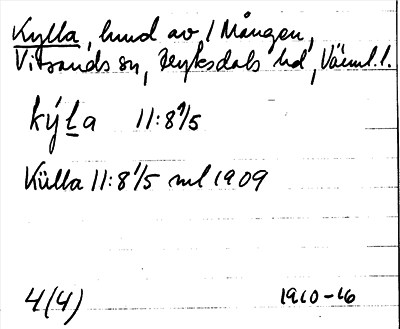 Kylla, hmd av l Mången,
Vitsands sn, Fryksdals hd, Värml. l.
kýḻa 11:8⁹/5
Külla 11:8¹/5 ml 1909
4(4) 1910-16